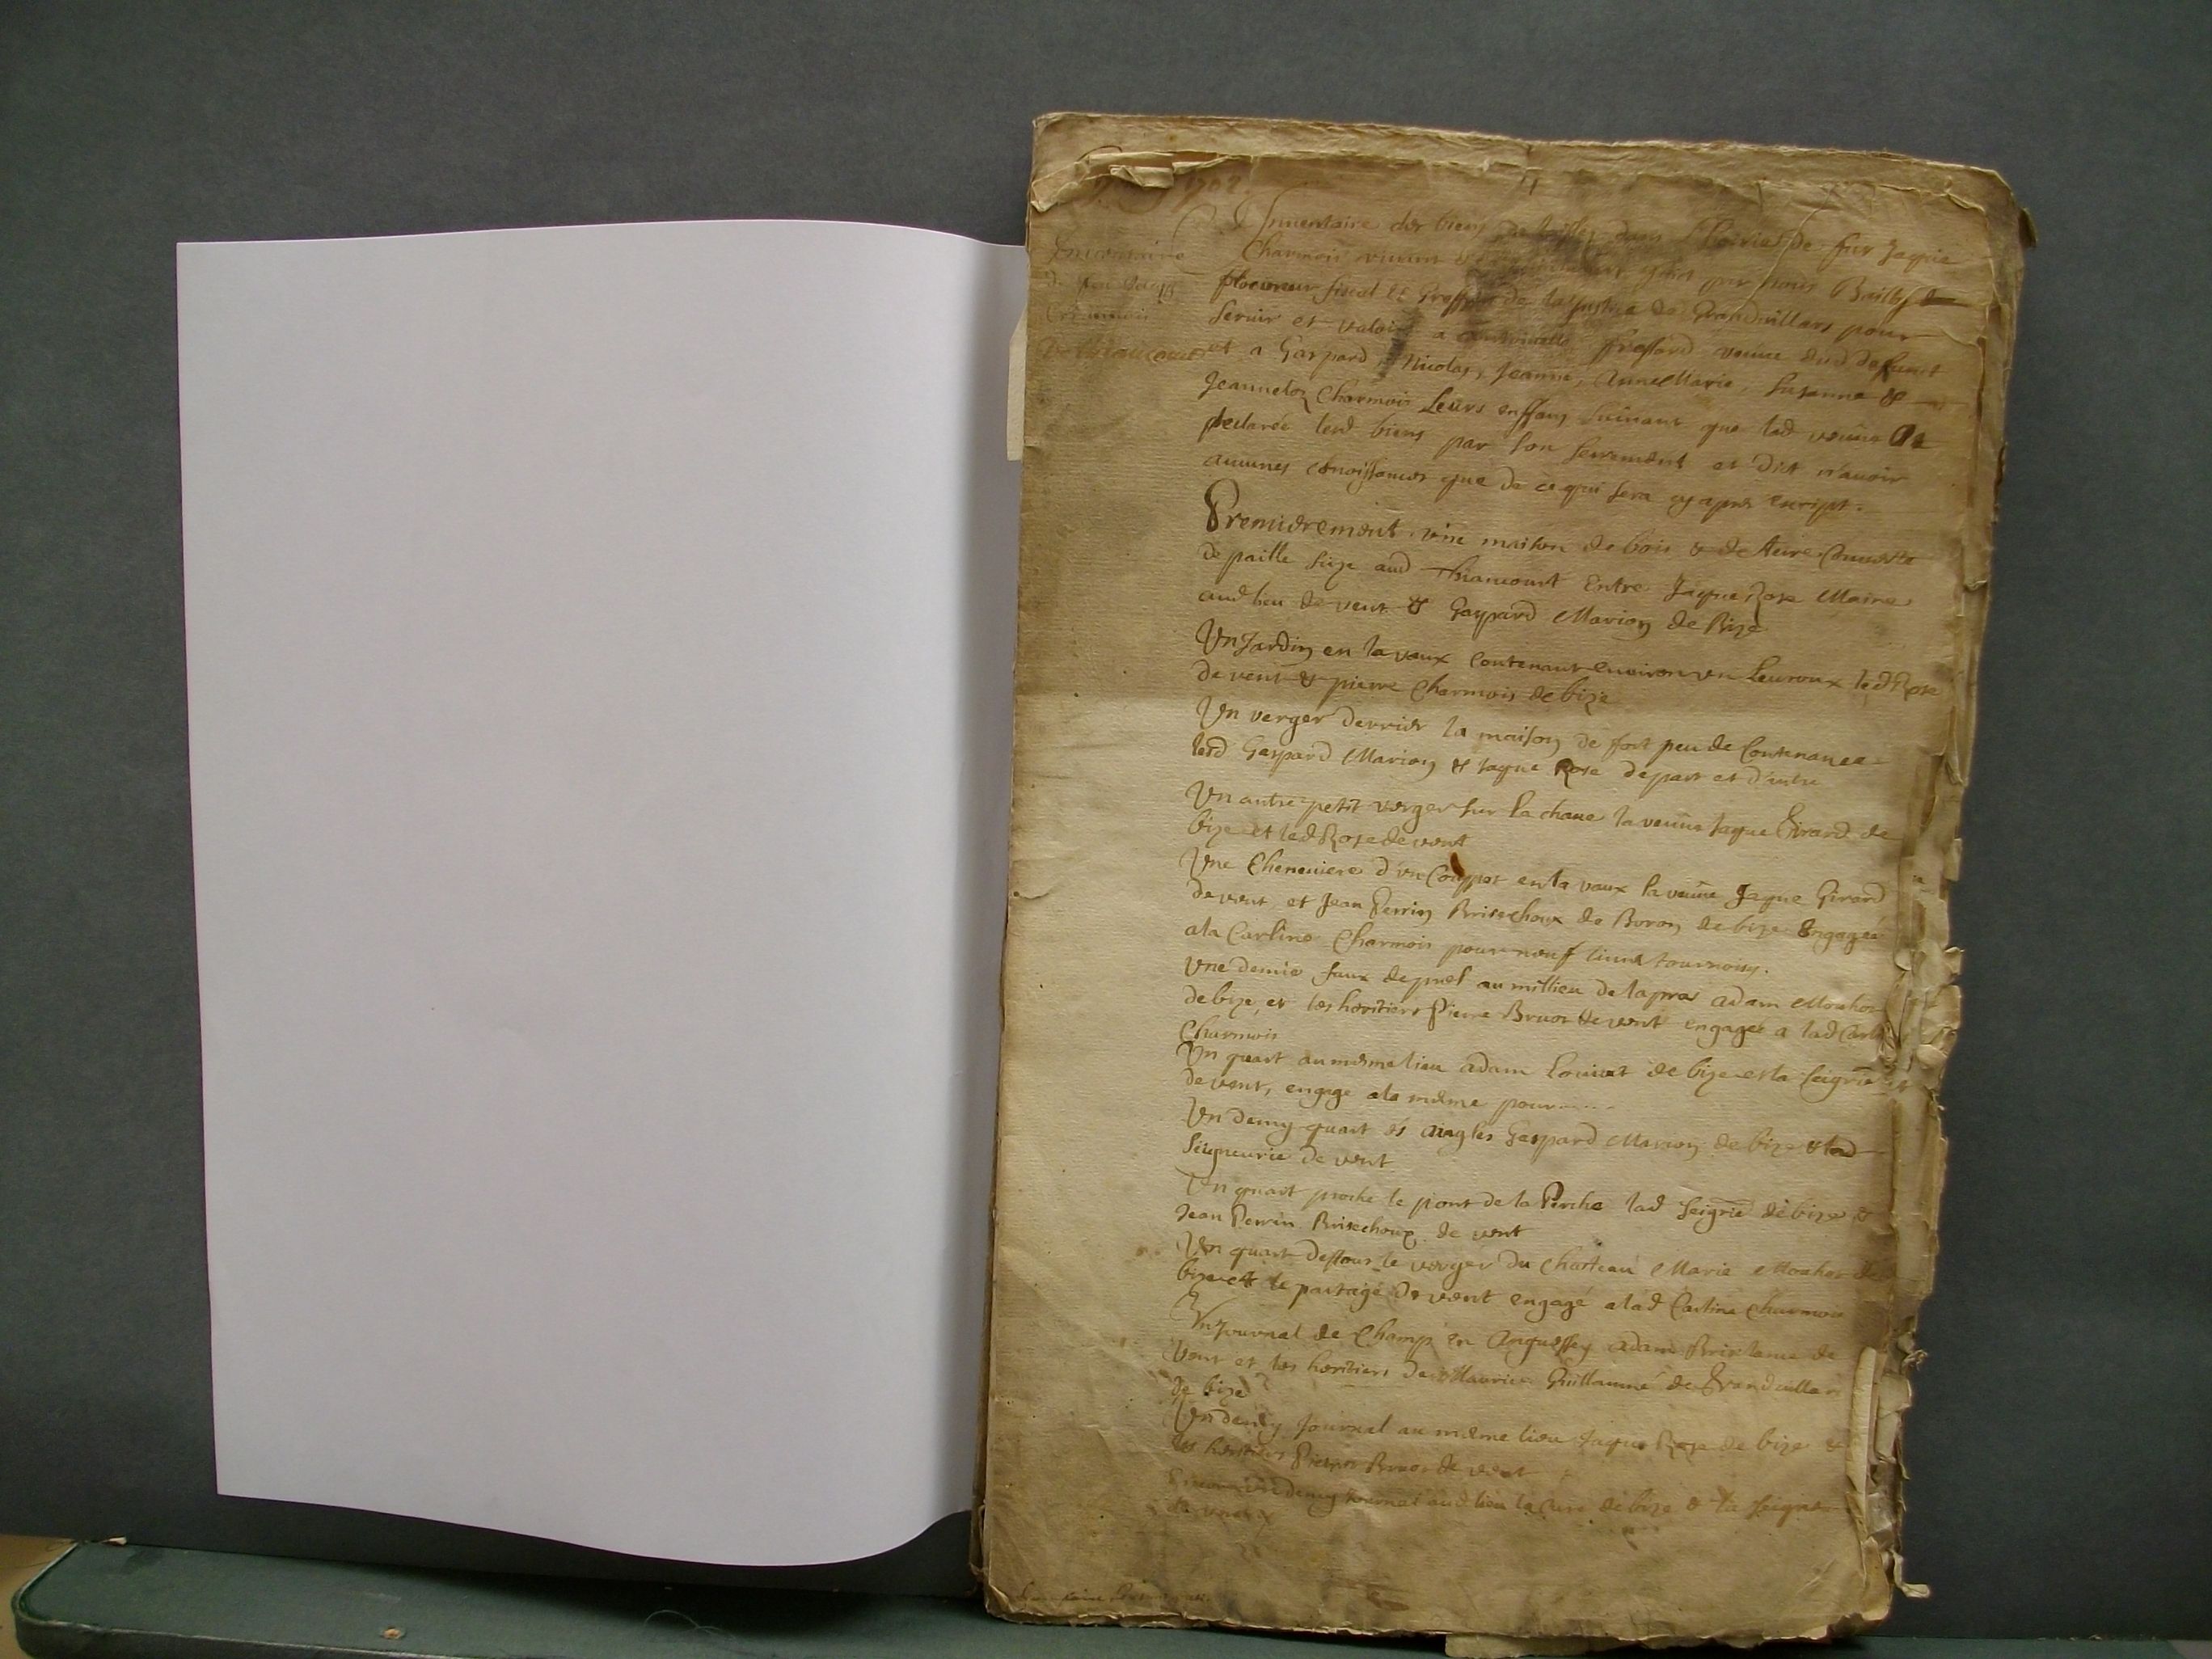 1702
Inventaire
de feu Jacque
Charmois
de Thiancourt
Inventaire des biens delaissez dans l'hoirie de fut Jaque
Charmois vivant par nous Bailly
procureur fiscal et Greffier de la justice de Grandvillars pour
servir et valoir a Anthoinette Fressard veuue dud defunct
et a Gaspard, Nicolas, Jeanne, AnneMarie, Susanne &
Jeanneton Charmois Leurs enffans suiuant que lad veuue a
declaréé lesd biens par son serrement et dict n'auoir
aucunes cknoissances que de ce qui sera cy apres escript.
Premierement, vne maison de bois & de terre Couuerte
de paille size aud Thiancourt Entre Jaque Roze Maire
aud lieu de vent & Gaspard Marion de Bize
Un Jardin en la vaux Contenant enuiron vn leuroux led Roze
de vent & pierre Charmois de bize
Un verger derrier la maison de fort peu de Contenance
lesd Gaspard Marion & Jaque Roze de part et d'autre
Un autre petit verger sur la chaue la veuue Jaque Girard de
bize et led Roze de vent
Une Cheneuiere d'vn Couppot en la vaux la veuue Jaque Girard
de vent, et Jean Perrin Brisechoux de Boron de bize Engagéé
a la Carline Charmois pour neuf liures tournois.
Une demie faux de prel au millieu de la praz adam Mouhot
de bize, et les heritiers Pierre Bruot de vent engagéé a lad Carl
Charmois
Un quart au mesme lieu adam Louiuet de bize et la seigrie
de vent, engagé a la mesme pour.....
Un demy quart és aingles Gaspard Marion de bize & lad
Seigneurie de vent
Un quart proche le pont de la Perche lad seigrie de bize &
Jean Perrin Brisechoux de vent
Un quart dessous le verger du chasteau Marie Mouhot de
bize et le partage de vent engagé a lad Carline Charmois
Un Journal de Champ en adam Briselance de
Vent et les heritiers de Maurice Guillaume de Grandvillars
de bize
Un demy Journal au mesme lieu Jaque Roze de bize &
les heritiers Pierre Bruot de vent
Encor vn demy journal aud lieu la cure de bize & la seigneu
de vent